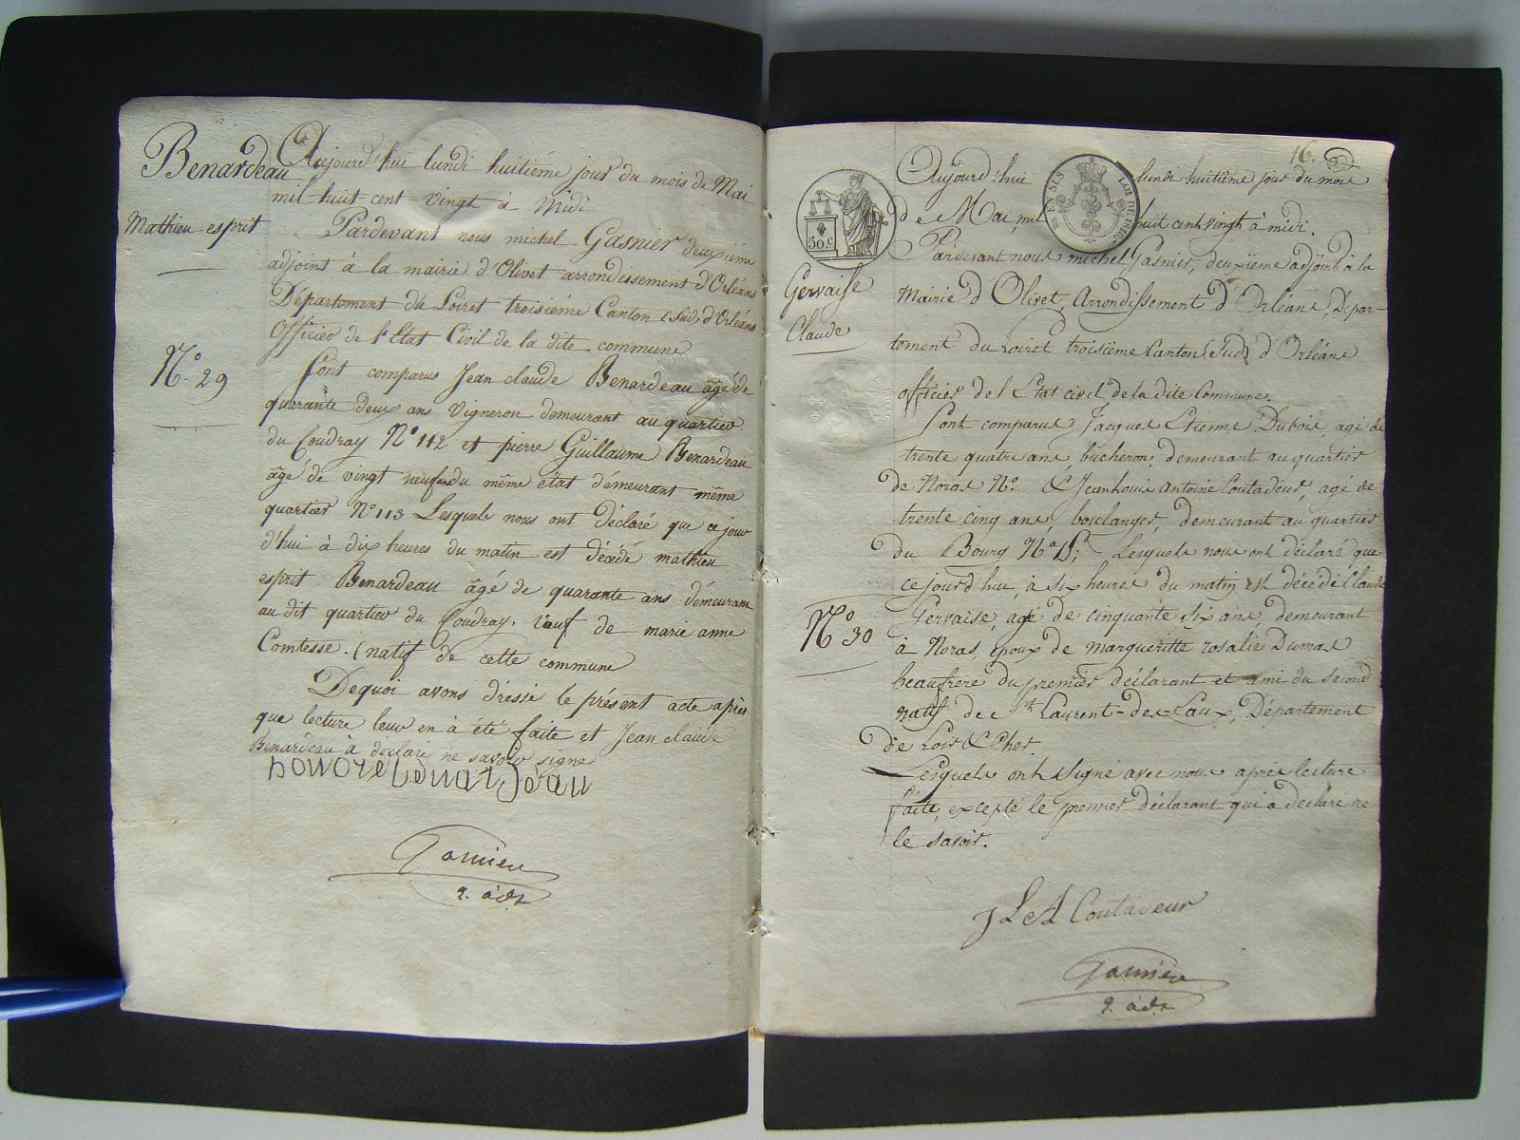 Benardeau
Mathieu esprit
N.° 29
Aujourd'hui lundi huitième jour du mois de Mai
mil huit cent vingt à Midi
Pardevant nous michel Gasnier deuxième
adjoint à la mairie d'Olivet arrondissement d'Orléans
Département du Loiret troisième Canton (Sud) d'Orléans
Officier de l'Etat Civil de la dite commune
Sont comparus Jean claude Benardeau âgé de
quarante deux ans vigneron demeurant au quartier
du Coudray N° 112 et pierre Guillaume Benardeau
âgé de vingt neuf du même état démeurant même
quartier N° 113 Lesquels nous ont déclaré que ce jour
d'hui à dix heures du matin est décédé mathieu
esprit Benardeau âgé de quarante ans démeurant
au dit quartier du Coudray. veuf de marie anne
Comtesse. (natif de cette commune
Dequoi avons dressé le présent acte après
que lecture leur en à été faite et Jean claude
Benardeau à déclaré ne savoir signé
2. adt
16.
30.c
Gervaise
Claude
N° 30
Aujourd'hui lundi huitième jour du mois
de Mai mil huit cent vingt à midi.
Pardevant nous michel Gasnier, deuxieme adjoint à la
Mairie d'Olivet, Arrondissement d'Orléans, Dépar-
tement du Loiret troisième Canton (Sud) d'Orléans
officier de l'Etat civil de la dite Commune.
Sont comparus Jacques Etienne Dubois, agé de
trente quatre ans, bucheron, demeurant au quartier
de Noras N° & Jean Louis Antoine Coutadeur, agé de
trente cinq ans, boulanger, demeurant au quartier
du Bourg N° Lesquels nous ont déclaré que
cejourd'hui, à six heures du matin est décédé Claude
Gervaise, agé de cinquante six ans, demeurant
à Noras, époux de margueritte rosalie Dumas
beaufrere du premier déclarant et ami du second
natif de St Laurent-des-Eaux, Département
de Loir & Cher.
Lesquels ont signé avec nous après lecture
faite, excepté le premier déclarant qui a déclaré ne
le savoir.
J L A Coutadeur
2. adt